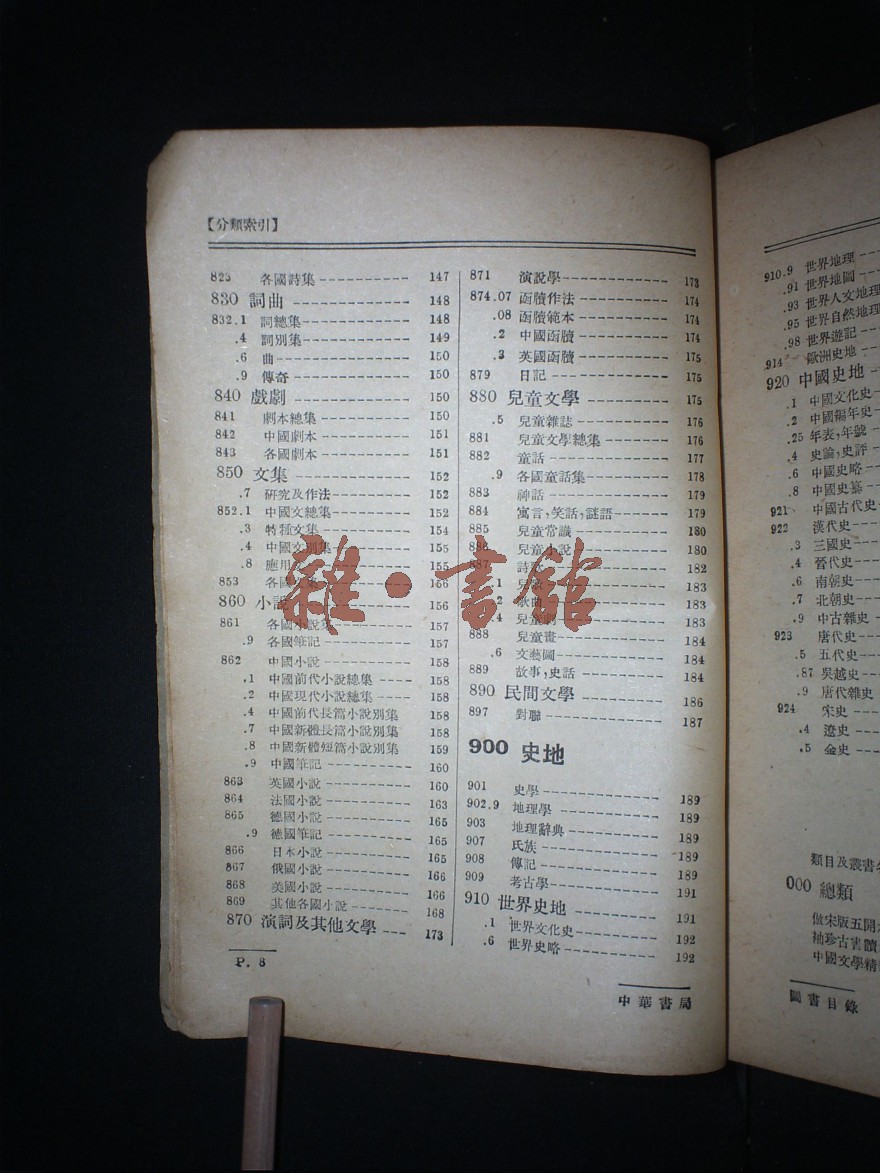 【分類索引】
823 各國詩集 147
830 詞曲 148
832.1 詞總集 148
.4 詞別集 149
.6 曲 150
.9 傳奇 150
840 戲劇 150
841 劇本總集 150
842 中國劇本 151
843 各國劇本 151
850 文集 152
.7 研究及作法 152
852.1 中國文總集 152
.3 特種文集 154
.4 中國文別集 155
.8 應用 155
853 各國文集 156
860 小說 156
861 各國小說集 157
.9 各國筆記 157
862 中國小說 158
.1 中國前代小說總集 158
.2 中國現代小說總集 158
.4 中國前代長篇小說別集 158
.7 中國新體長篇小說別集 158
.8 中國新體短篇小說別集 159
.9 中國筆記 160
863 英國小說 160
864 法國小說 163
865 德國小說 165
.9 德國筆記 165
866 日本小說 165
867 俄國小說 166
868 美國小說 166
869 其他各國小說 168
870 演詞及其他文學 173
P. 8
871 演說學 173
874.07 函牘作法 174
.08 函牘範本 174
.2 中國函牘 174
.3 英國函牘 175
879 日記 175
880 兒童文學 175
.5 兒童雜誌 176
881 兒童文學總集 176
882 童話 177
.9 各國童話集 178
883 神話 179
884 寓言,笑話,謎語 179
885 兒童常識 180
886 兒童小說 180
887 詩歌 182
.1 兒歌 183
.2 歌曲 183
.4 兒童劇 183
888 兒童畫 184
.6 文藝圖 184
889 故事,史話 184
890 民間文學 186
897 對聯 187
900 史地
901 史學 189
902.9 地理學 189
903 地理辭典 189
907 民族 189
908 傳記 189
909 考古學 191
910 世界史地 191
.1 世界文化史 192
.6 世界史略 192
中華書局
雜·書館
910.9 世界地理
.91 世界地圖
.93 世界人文地理
.95 世界自然地理
.98 世界遊記
914 歐洲史地
920 中國史地
.1 中國文化史
.2 中國編年史
.25 年表,年號
.4 史論,史評
.6 中國史略
.8 中國史纂
921 中國古代史
922 漢代史
.3 三國史
.4 晉代史
.6 南朝史
.7 北朝史
.9 中古雜史
923 唐代史
.5 五代史
.87 吳越史
.9 唐代雜史
924 宋史
.4 遼史
.5 金史
類目及叢書
000 總類
倣宋版五開
袖珍古書讀
中國文學精
圖書目錄